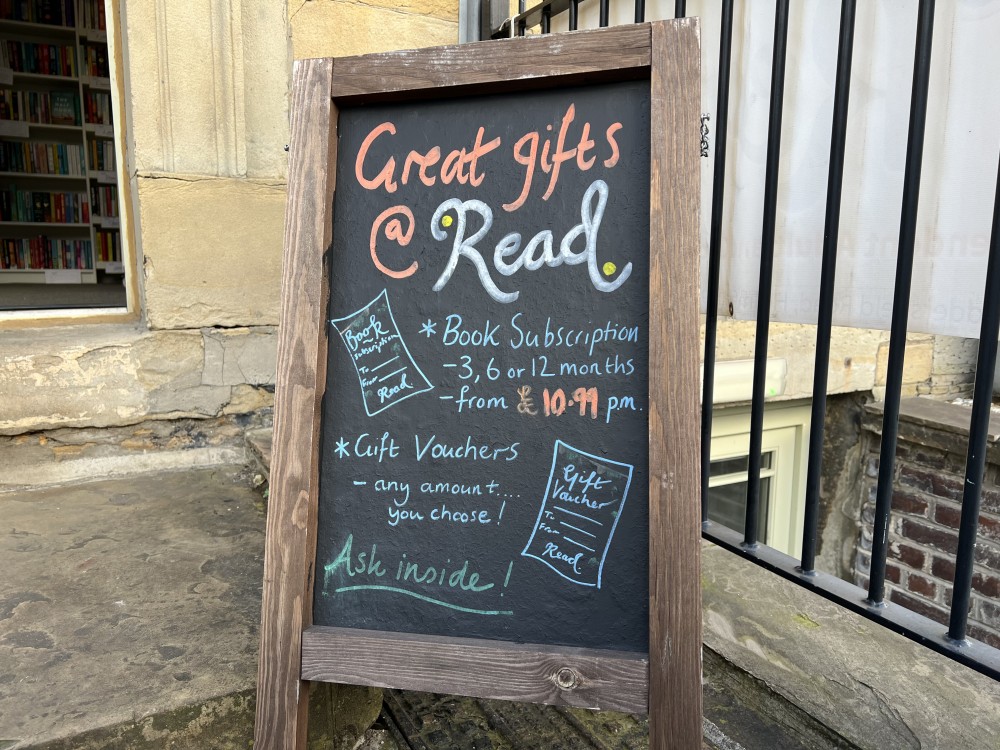 Great gifts
@ Read.
Book
subscription
To
From
Read
* Book Subscription
- 3, 6 or 12 months
- from £10.99 p.m.
* Gift Vouchers
- any amount....
you choose!
Gift
Voucher
To
From
Read.
Ask inside!